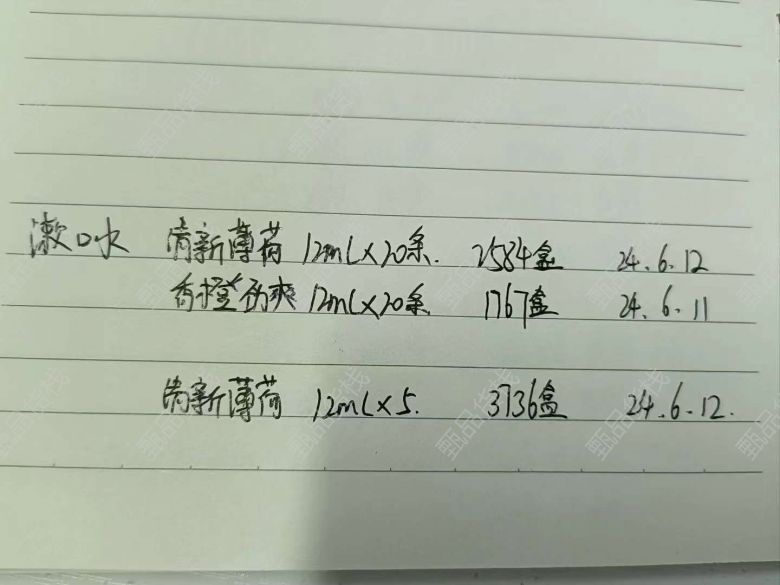 漱口水 清新薄荷 12mL×20条. 2584盒 24.6.12
香橙 爽 12mL×20条 1767盒 24.6.11
清新薄荷 12mL×5. 3736盒 24.6.12.
甄品货栈